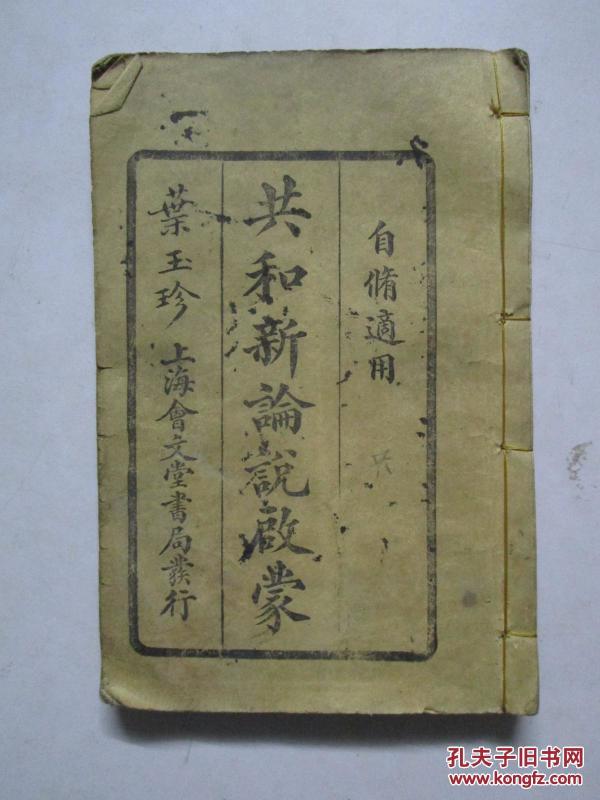 自脩適用
共
共和新論説啟蒙
葉玉珍
上海會文堂書局發行
孔夫子旧书网
www.kongfz.com